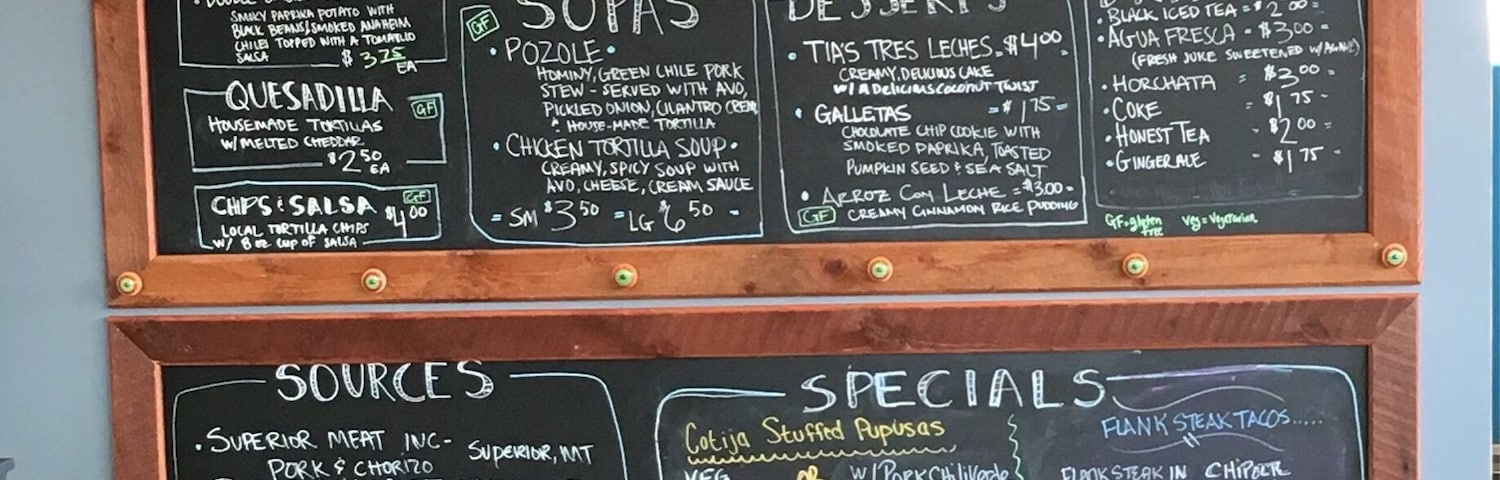 SMOKY PAPRIKA POTATO WITH
BLACK BEANS/SMOKED ANAHEIM
CHILES TOPPED WITH A TOMATILLO
SALSA
$3.75 EA
QUESADILLA GF
HOUSEMADE TORTILLAS
W/ MELTED CHEDDAR
$2.50 EA
CHIPS & SALSA GF
$4.00
LOCAL TORTILLA CHIPS
W/ 8 oz cup of SALSA
GF SOPAS
• POZOLE •
HOMINY, GREEN CHILE PORK
STEW - SERVED WITH AVO,
PICKLED ONION, CILANTRO CREM
& HOUSE-MADE TORTILLA
• CHICKEN TORTILLA SOUP •
CREAMY, SPICY SOUP WITH
AVO, CHEESE, CREAM SAUCE
= SM $3.50 = LG $6.50 -
DESSERTS
• TIA'S TRES LECHES = $4.00
CREAMY, DELICIOUS CAKE
W/ A DELICIOUS COCONUT TWIST
• GALLETAS = $1.75 =
CHOCOLATE CHIP COOKIE WITH
SMOKED PAPRIKA, TOASTED
PUMPKIN SEED & SEA SALT
• ARROZ CON LECHE = $3.00 =
GF CREAMY CINNAMON RICE PUDDING
• BLACK ICED TEA = $2.00 =
• AGUA FRESCA - $3.00 =
(FRESH JUICE SWEETENED W/ AGAVE)
• HORCHATA = $3.00 =
• COKE = $1.75 =
• HONEST TEA - $2.00 =
• GINGER ALE - $1.75 -
GF = gluten free Veg = Vegetarian
SOURCES
• SUPERIOR MEAT INC - SUPERIOR, MT
PORK & CHORIZO
SPECIALS
Cotija Stuffed Pupusas
VEG OR W/ PORK Chili Verde
FLANK STEAK TACOS.....
FLANK STEAK IN CHIPOTLE